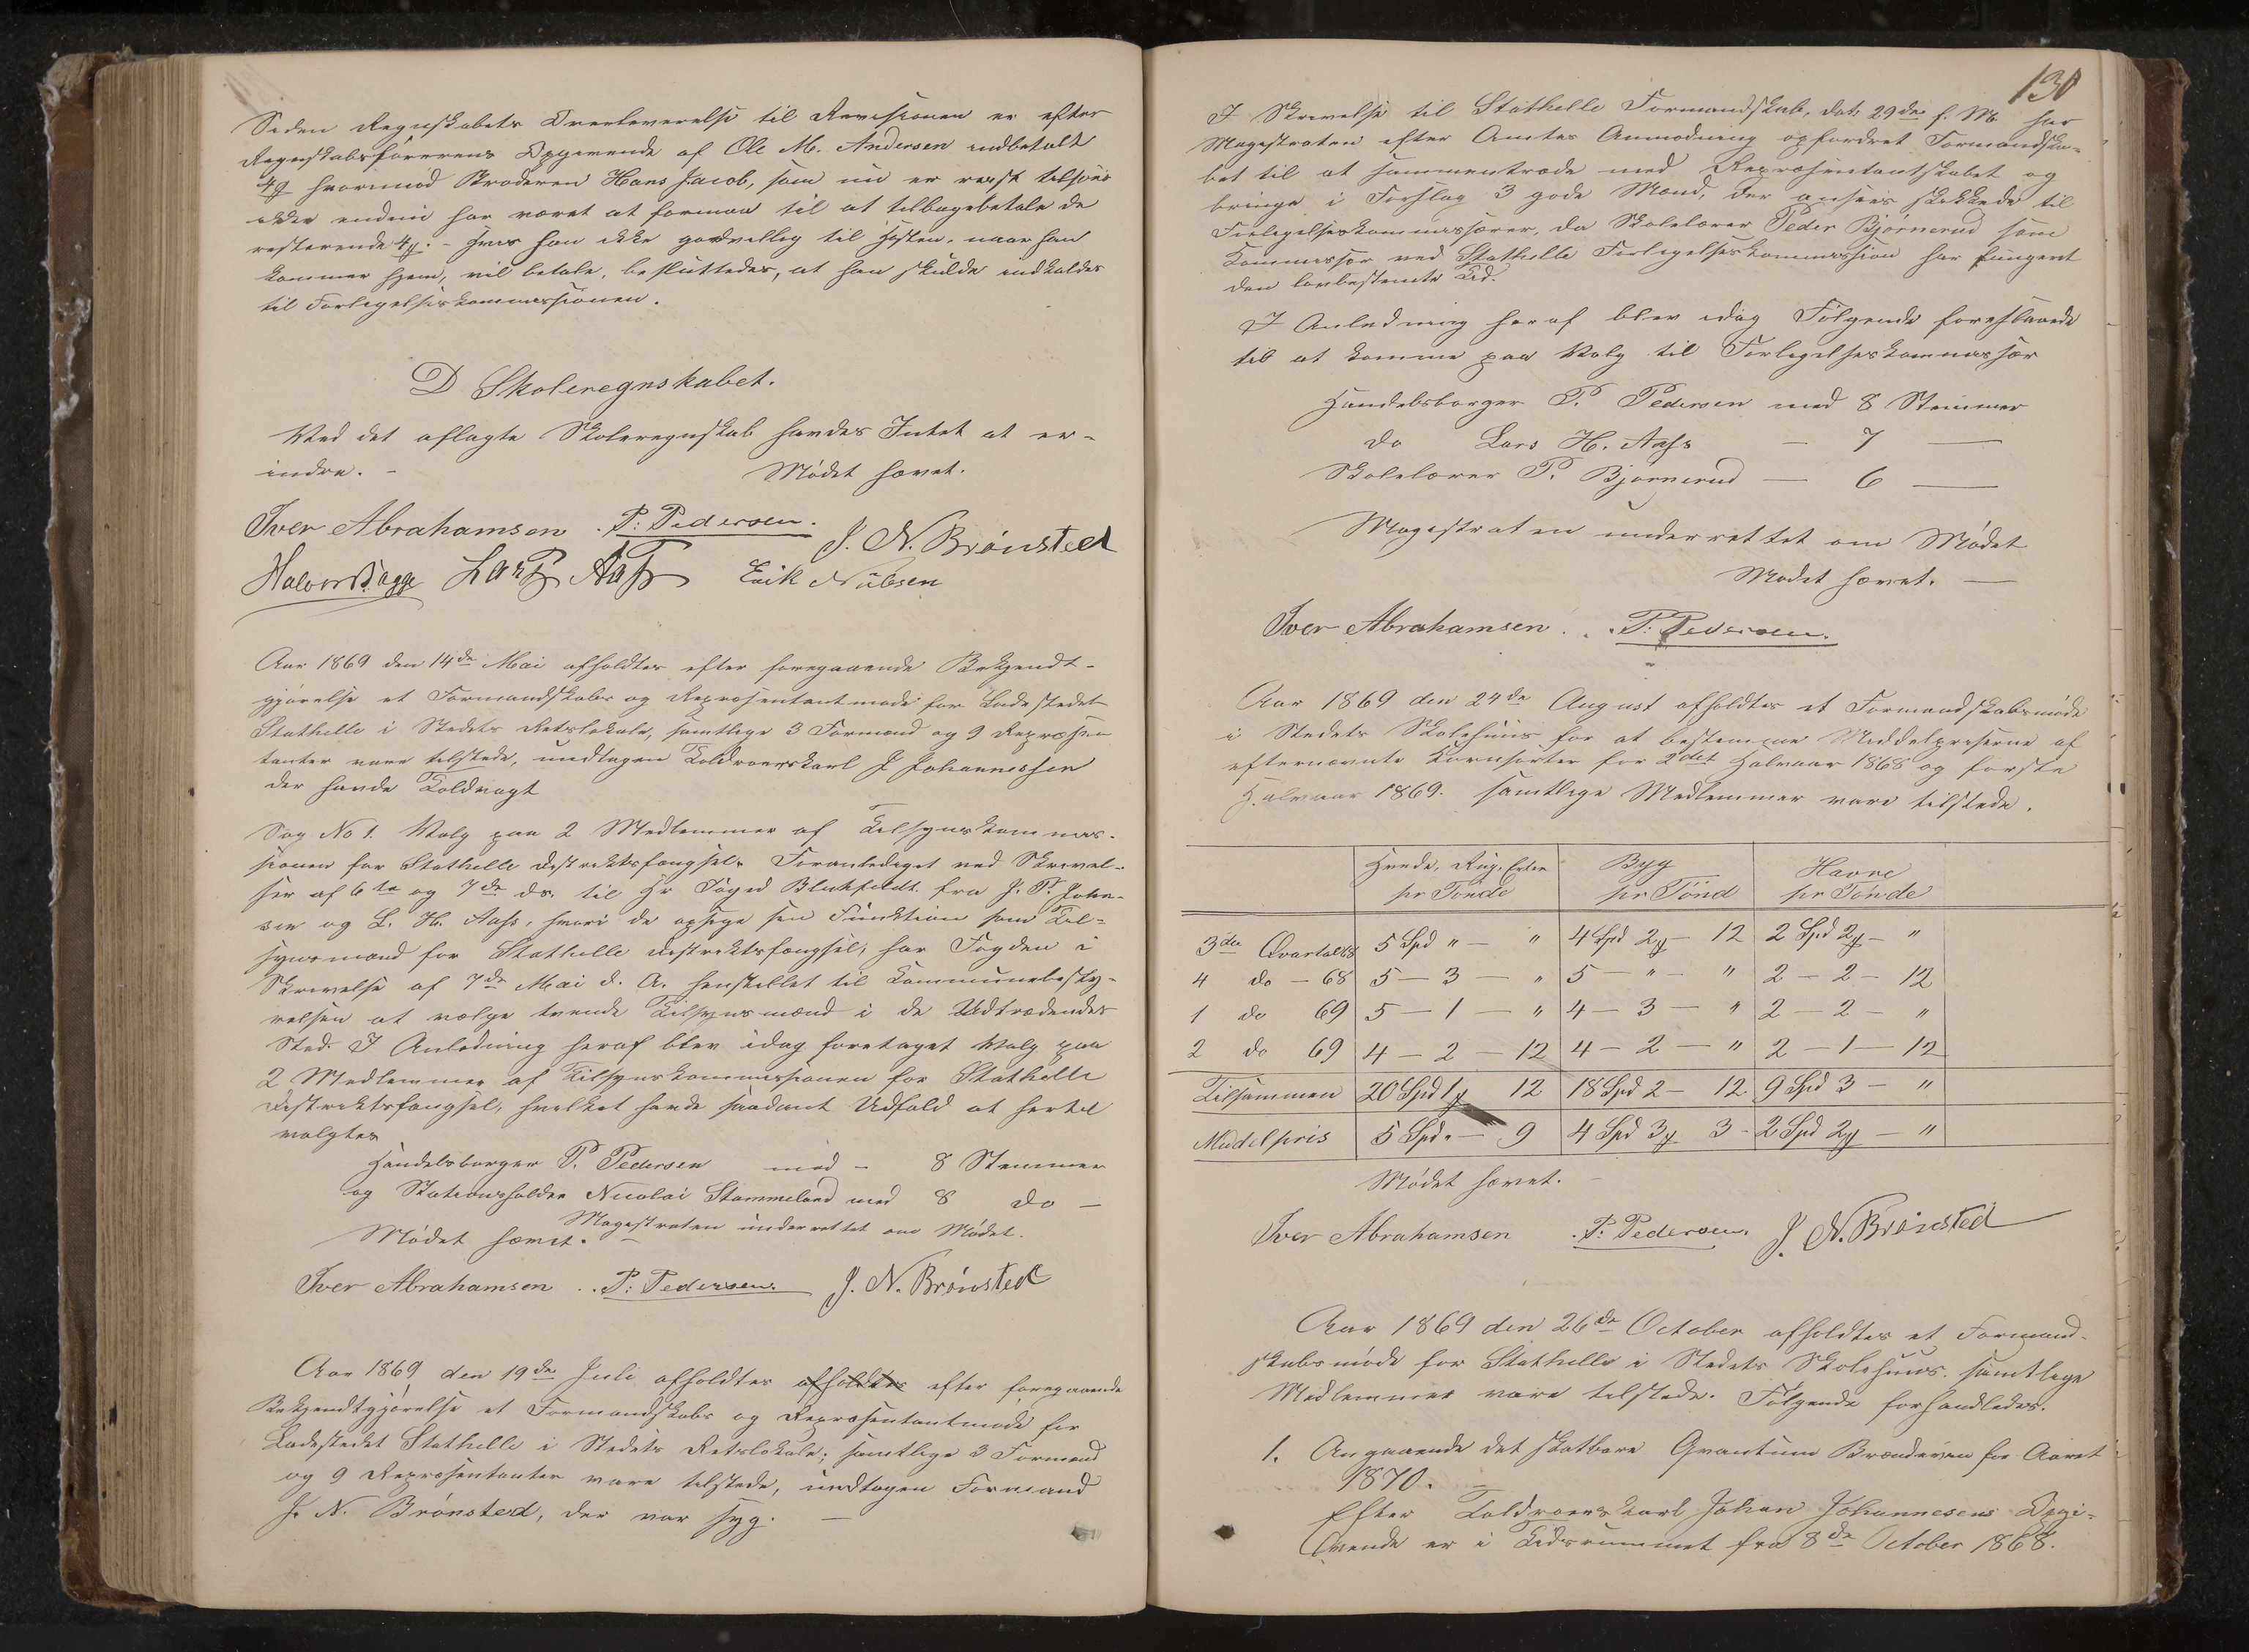 Siden Regnskabets Overleverelse til Revisionen er efter
Regnskabsførerens Opgivende af Ole M. Andersen indbetalt
4 hvorimod Broderen Hans Jacob, som nu er reist tilsøes
ikke endnu har været at formaa til at tilbagebetale de
resterende 4. – Hvis han ikke godvillig til Høsten, naar han
kommer hjem, vil betale, besluttedes, at han skulde indkaldes
til Forligelseskommissionen.
D Skoleregnskabet.
Ved det aflagte Skoleregnskab havdes Intet at er-
indre. –
Mødet hævet.
Iver Abrahamsen . P: Pedersen. J. N. Brønsted
Halvor Bagge Lars Aass Erik Nilsen
Aar 1869 den 14de Mai afholdtes efter foregaaende Bekjendt-
gjørelse et Formandskabs og Repræsentantmøde for Ladestedet
Stathelle i Stedets Retslokale, samtlige 3 Formænd og 9 Repræsen
tanter vare tilstede, undtagen Toldroerskarl J Johannessen
der havde Toldvagt
Sag No 1. Valg paa 2 Medlemmer af Tilsynskommis-
sionen for Stathelle Distriktsfængsel. Foranlediget ved Skrivel-
ser af 6te og 7de ds. til Hr Foged Blichfeldt fra J. P. John-
sen og L. H. Aass, hvori de opsige sin Funktion som Til-
synsmænd for Stathelle Distriktsfængsel, har Fogden i
Skrivelse af 7de Mai d. A. henstillet til Kommunebesty-
relsen at vælge tvende Tilsynsmænd i de Udtrædendes
Sted. I Anledning heraf blev idag foretaget Valg paa
2 Medlemmer af Tilsynskommissionen for Stathelle
Distriktsfængsel, hvilket havde saadant Udfald at hertil
valgtes
Handelsborger P. Pedersen med – 8 Stemmer
og Stationsholder Nicolai Stammeland med 8 do –
Magistraten underrettet om Mødet.
Mødet hævet. –
Iver Abrahamsen . . P: Pedersen. J. N. Brønsted
Aar 1869 den 19de Juli afholdtes afholdtes efter foregaaende
Bekjendtgjørelse et Formandskabs og Repræsentantmøde for
Ladestedet Stathelle i Stedets Retslokale; samtlige 3 Formænd
og 9 Repræsentanter vare tilstede, undtagen Formand
J. N. Brønsted, der var syg. –
130
I Skrivelse til Stathelle Formandskab, dat. 29de f. M. har
Magistraten efter Amtes Anmodning opfordret Formandska-
bet til at sammentræde med Repræsentantskabet og
bringe i Forslag 3 gode Mænd, der ansees skikkede til
Forligelseskommissærer, da Skolelærer Peder Bjørnerud som
Kommissær ved Stathelle Forligelseskommission har fungeret
den lovbestemte Tid.
I Anledning heraf blev idag Følgende foreslaaede
til at komme paa Valg til Forligelseskommissær
Handelsborger P. Pedersen med 8 Stemmer
do Lars H. Aass – 7 —
Skolelærer P. Bjørnerud — 6 —
Magistraten underrettet om Mødet
Mødet hævet. —
Iver Abrahamsen . . P: Pedersen.
Aar 1869 den 24de August afholdtes et Formandskabsmøde
i Stedets Skolehuus for at bestemme Middelpriserne af
efternævnte Kornsorter for 2det Halvaar 1868 og første
Halvaar 1869. samtlige Medlemmer vare tilstede.
Hvede, Rug, Erter pr Tønde Byg pr Tønd Havre pr Tønde
3die Qvartal 68 5 Spd " – " 4 Spd 2 – 12 2 Spd 2 – "
4 do – 68 5 – 3 – " 5 – " – " 2 – 2 – 12
1 do 69 5 – 1 – " 4 – 3 – " 2 – 2 – "
2 do 69 4 – 2 – 12 4 – 2 – " 2 – 1 – 12
Tilsammen 20 Spd 1 12 18 Spd 2 – 12 9 Spd 3 – "
Middelpris 5 Spd. – 9 4 Spd 3 3 – 2 Spd 2 – "
Mødet hævet. –
Iver Abrahamsen . P: Pedersen. J. N. Brønsted
Aar 1869 den 26de October afholdtes et Formand-
skabsmøde for Stathelle i Stedets Skolehuus. samtlige
Medlemmer vare tilstede. Følgende forhandledes.
1. Angaaende det skatbare Qvantum Brændevin for Aaret
1870. –
Efter Toldroerskarl Johan Johannesens Opgi-
vende er i Tidsrummet fra 8de October 1868.